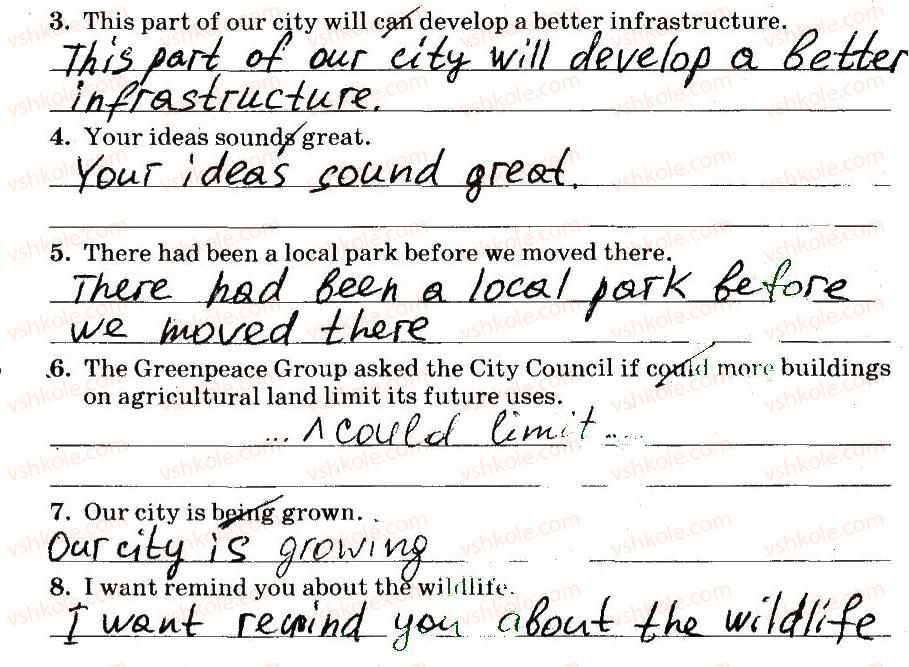 3. This part of our city will can develop a better infrastructure.
This part of our city will develop a better
infrastructure.
4. Your ideas sounds great.
Your ideas sound great.
5. There had been a local park before we moved there.
There had been a local park before
we moved there
6. The Greenpeace Group asked the City Council if could more buildings
on agricultural land limit its future uses.
... ^ could limit ...
7. Our city is being grown.
Our city is growing
8. I want remind you about the wildlife.
I want remind you about the wildlife